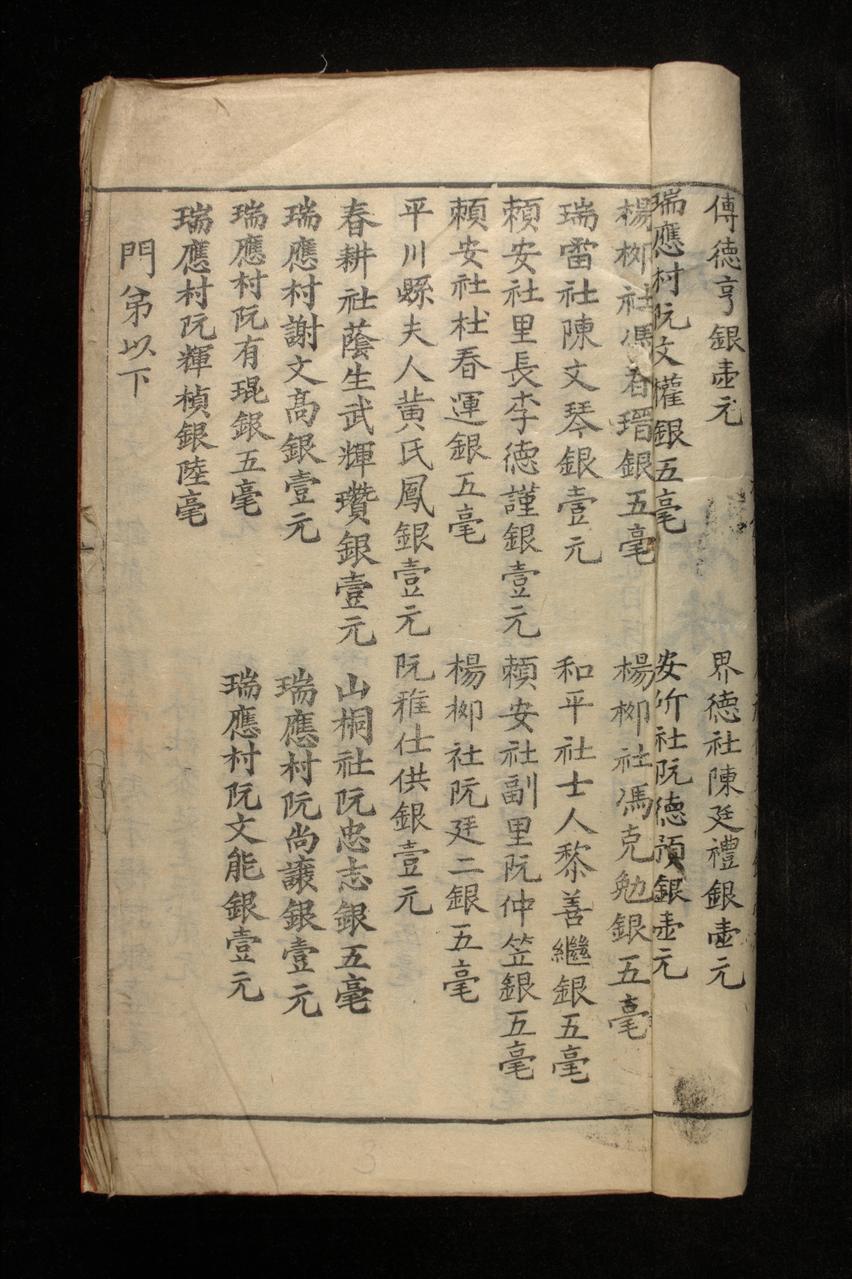 傅德亨銀壹元
界德社陳廷禮銀壹元
瑞應村阮文權銀五毫
安㐰社阮德碩銀壹元
楊柳社馮春瑨銀五毫
楊柳社馮克勉銀五毫
瑞雷社陳文琴銀壹元
和平社士人黎善繼銀五毫
賴安社里長李德謹銀壹元
賴安社副里阮仲笠銀五毫
賴安社杜春運銀五毫
楊柳社阮廷二銀五毫
平川縣夫人黃氏鳳銀壹元
阮稚仕供銀壹元
春耕社蔭生武輝瓚銀壹元
山桐社阮忠志銀五毫
瑞應村謝文高銀壹元
瑞應村阮尚讓銀壹元
瑞應村阮有琨銀五毫
瑞應村阮文能銀壹元
瑞應村阮輝楨銀陸毫
門弟以下
3